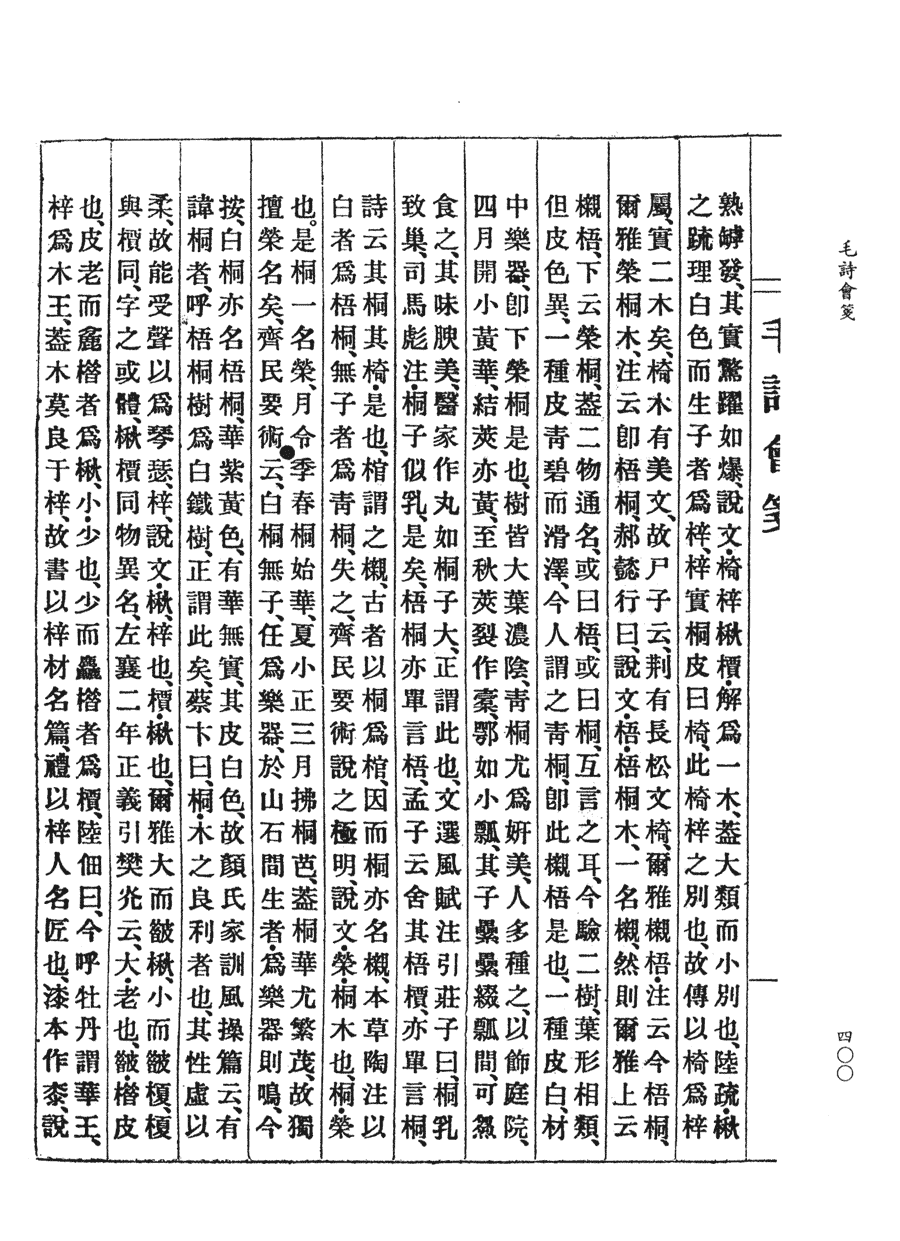 毛詩會箋
四〇〇
毛詩會箋
熟罅發、其實驚躍如爆、說文・椅梓楸檟・解爲一木、蓋大類而小別也、陸疏・楸
之疏理白色而生子者爲梓、梓實桐皮曰椅、此椅梓之別也、故傳以椅爲梓
屬、實二木矣、椅木有美文、故尸子云、荆有長松文椅、爾雅櫬梧注云今梧桐、
爾雅榮桐木、注云卽梧桐、郝懿行曰、說文・梧・梧桐木、一名櫬、然則爾雅上云
櫬梧、下云榮桐、蓋二物通名、或曰梧、或曰桐、互言之耳、今驗二樹、葉形相類、
但皮色異、一種皮靑碧而滑澤、今人謂之靑桐、卽此櫬梧是也、一種皮白、材
中樂器、卽下榮桐是也、樹皆大葉濃陰、靑桐尤爲姸美、人多種之、以飾庭院、
四月開小黃華、結莢亦黃、至秋莢裂作橐、鄂如小瓢、其子纍纍綴瓢間、可煼
食之、其味腴美、醫家作丸如桐子大、正謂此也、文選風賦注引莊子曰、桐乳
致巢、司馬彪注・桐子似乳、是矣、梧桐亦單言梧、孟子云舍其梧檟、亦單言桐、
詩云其桐其椅・是也、棺謂之櫬、古者以桐爲棺、因而桐亦名櫬、本草陶注以
白者爲梧桐、無子者爲靑桐、失之、齊民要術說之極明、說文・榮・桐木也、桐・榮
也。是桐一名榮、月令季春桐始華、夏小正三月拂桐芭、蓋桐華尤繁茂、故獨
擅榮名矣、齊民要術云、白桐無子、任爲樂器、於山石間生者・爲樂器則鳴、今
按、白桐亦名梧桐、華紫黃色、有華無實、其皮白色、故顏氏家訓風操篇云、有
諱桐者、呼梧桐樹爲白鐵樹、正謂此矣、蔡卞曰、桐・木之良利者也、其性虛以
柔、故能受聲以爲琴瑟、梓、說文・楸、梓也、檟・楸也、爾雅大而皵楸、小而皵榎、榎
與檟同、字之或體、楸檟同物異名、左襄二年正義引樊光云、大・老也、皵・楷皮
也、皮老而麄楷者爲楸、小・少也、少而麤楷者爲檟、陸佃曰、今呼牡丹謂華王、
梓爲木王、蓋木莫良于梓、故書以梓材名篇、禮以梓人名匠也、漆本作桼、說